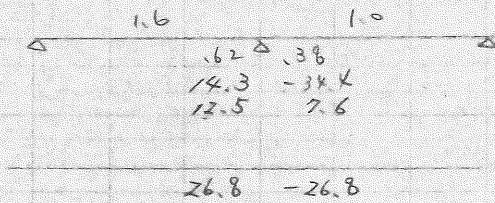 1.6 1.0
.62 .38
14.3 -34.4
12.5 7.6
26.8 -26.8